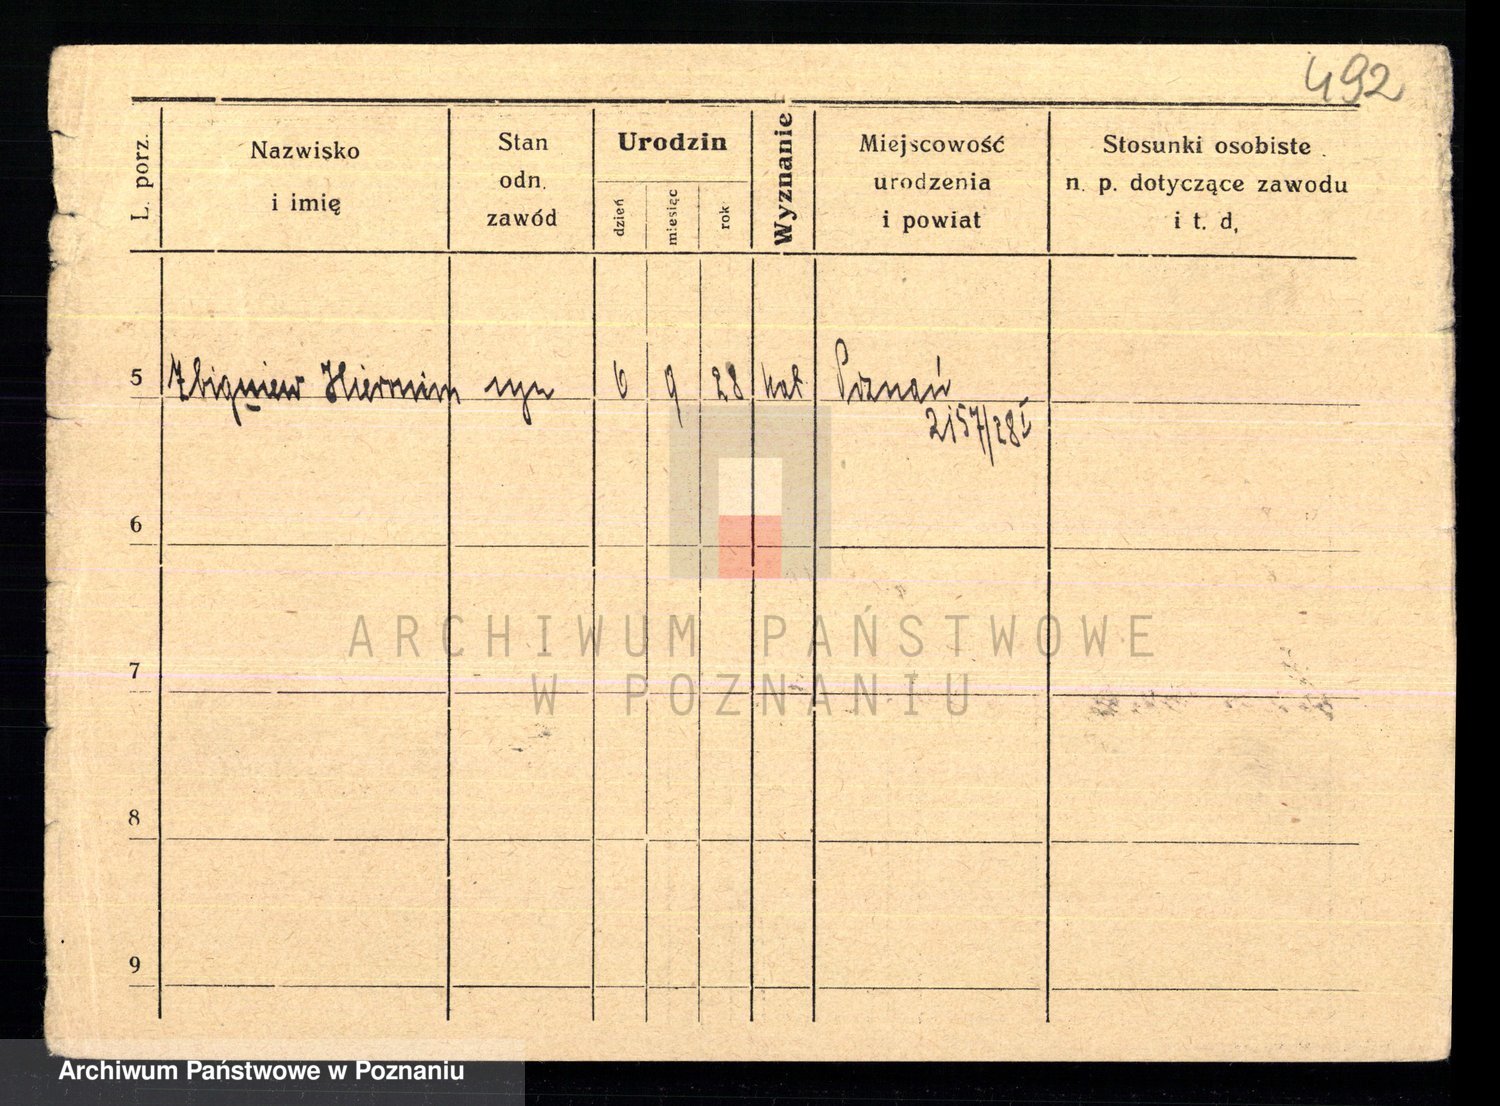 492
L. porz.
Nazwisko
i imię
Stan
odn.
zawód
Urodzin
dzień
miesiąc
rok
Wyznanie
Miejscowość
urodzenia
i powiat
Stosunki osobiste
n. p. dotyczące zawodu
i t. d.
5 Zbigniew Hieronim syn 6 9 28 kat Poznań
2157/28 I
6
7
8
9
ARCHIWUM PAŃSTWOWE
W POZNANIU
Archiwum Państwowe w Poznaniu